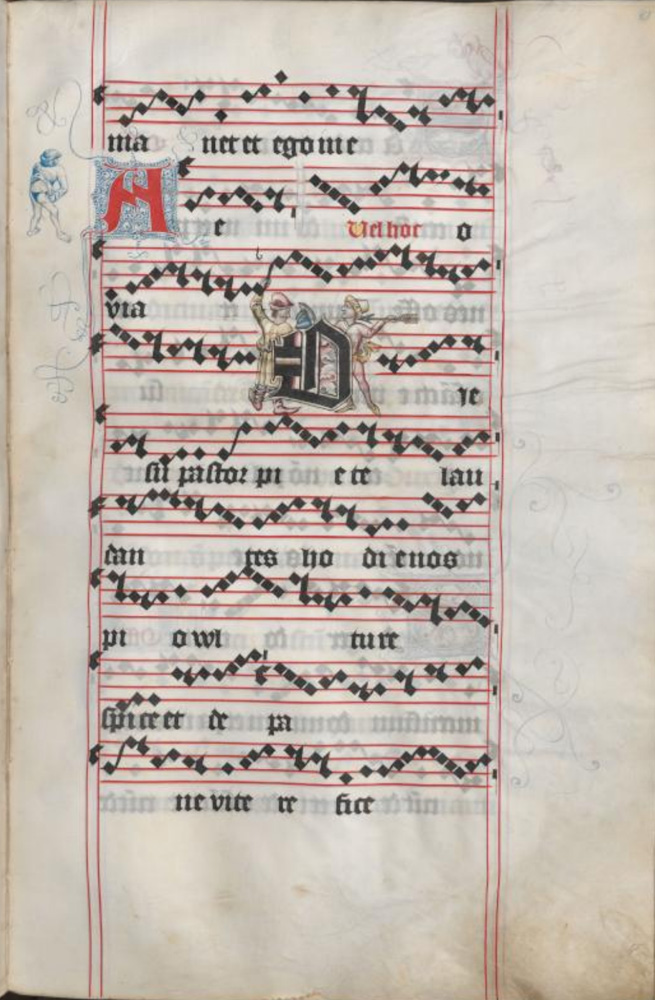 ma net et ego in e
A e Vel hoc o
via
D ie
su pastor pi e te lau
dan tes ho di e nos
pi o vul tu re
spice et de pa
ne vite re fice